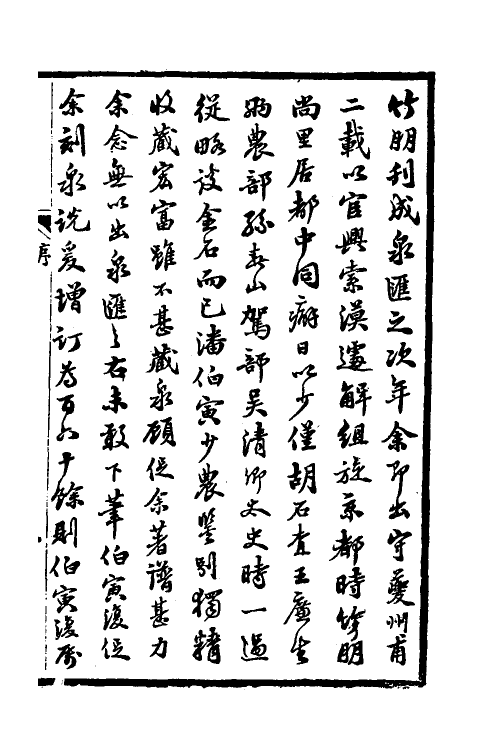 竹朋刊成泉匯之次年余即出守夔州甫
二載以官興索漠遽解組旋京都時竹朋
尚里居都中同癖日以少僅胡石查王廉生
兩農部孫春山駕部吳清卿太史時一過
從略談金石而已潘伯寅少農鑒別獨精
收藏宏富雖不甚藏泉顧促余著譜甚力
余念無以出泉匯之右未敢下筆伯寅復促
余刻泉說爰增訂為百八十餘則伯寅復
序